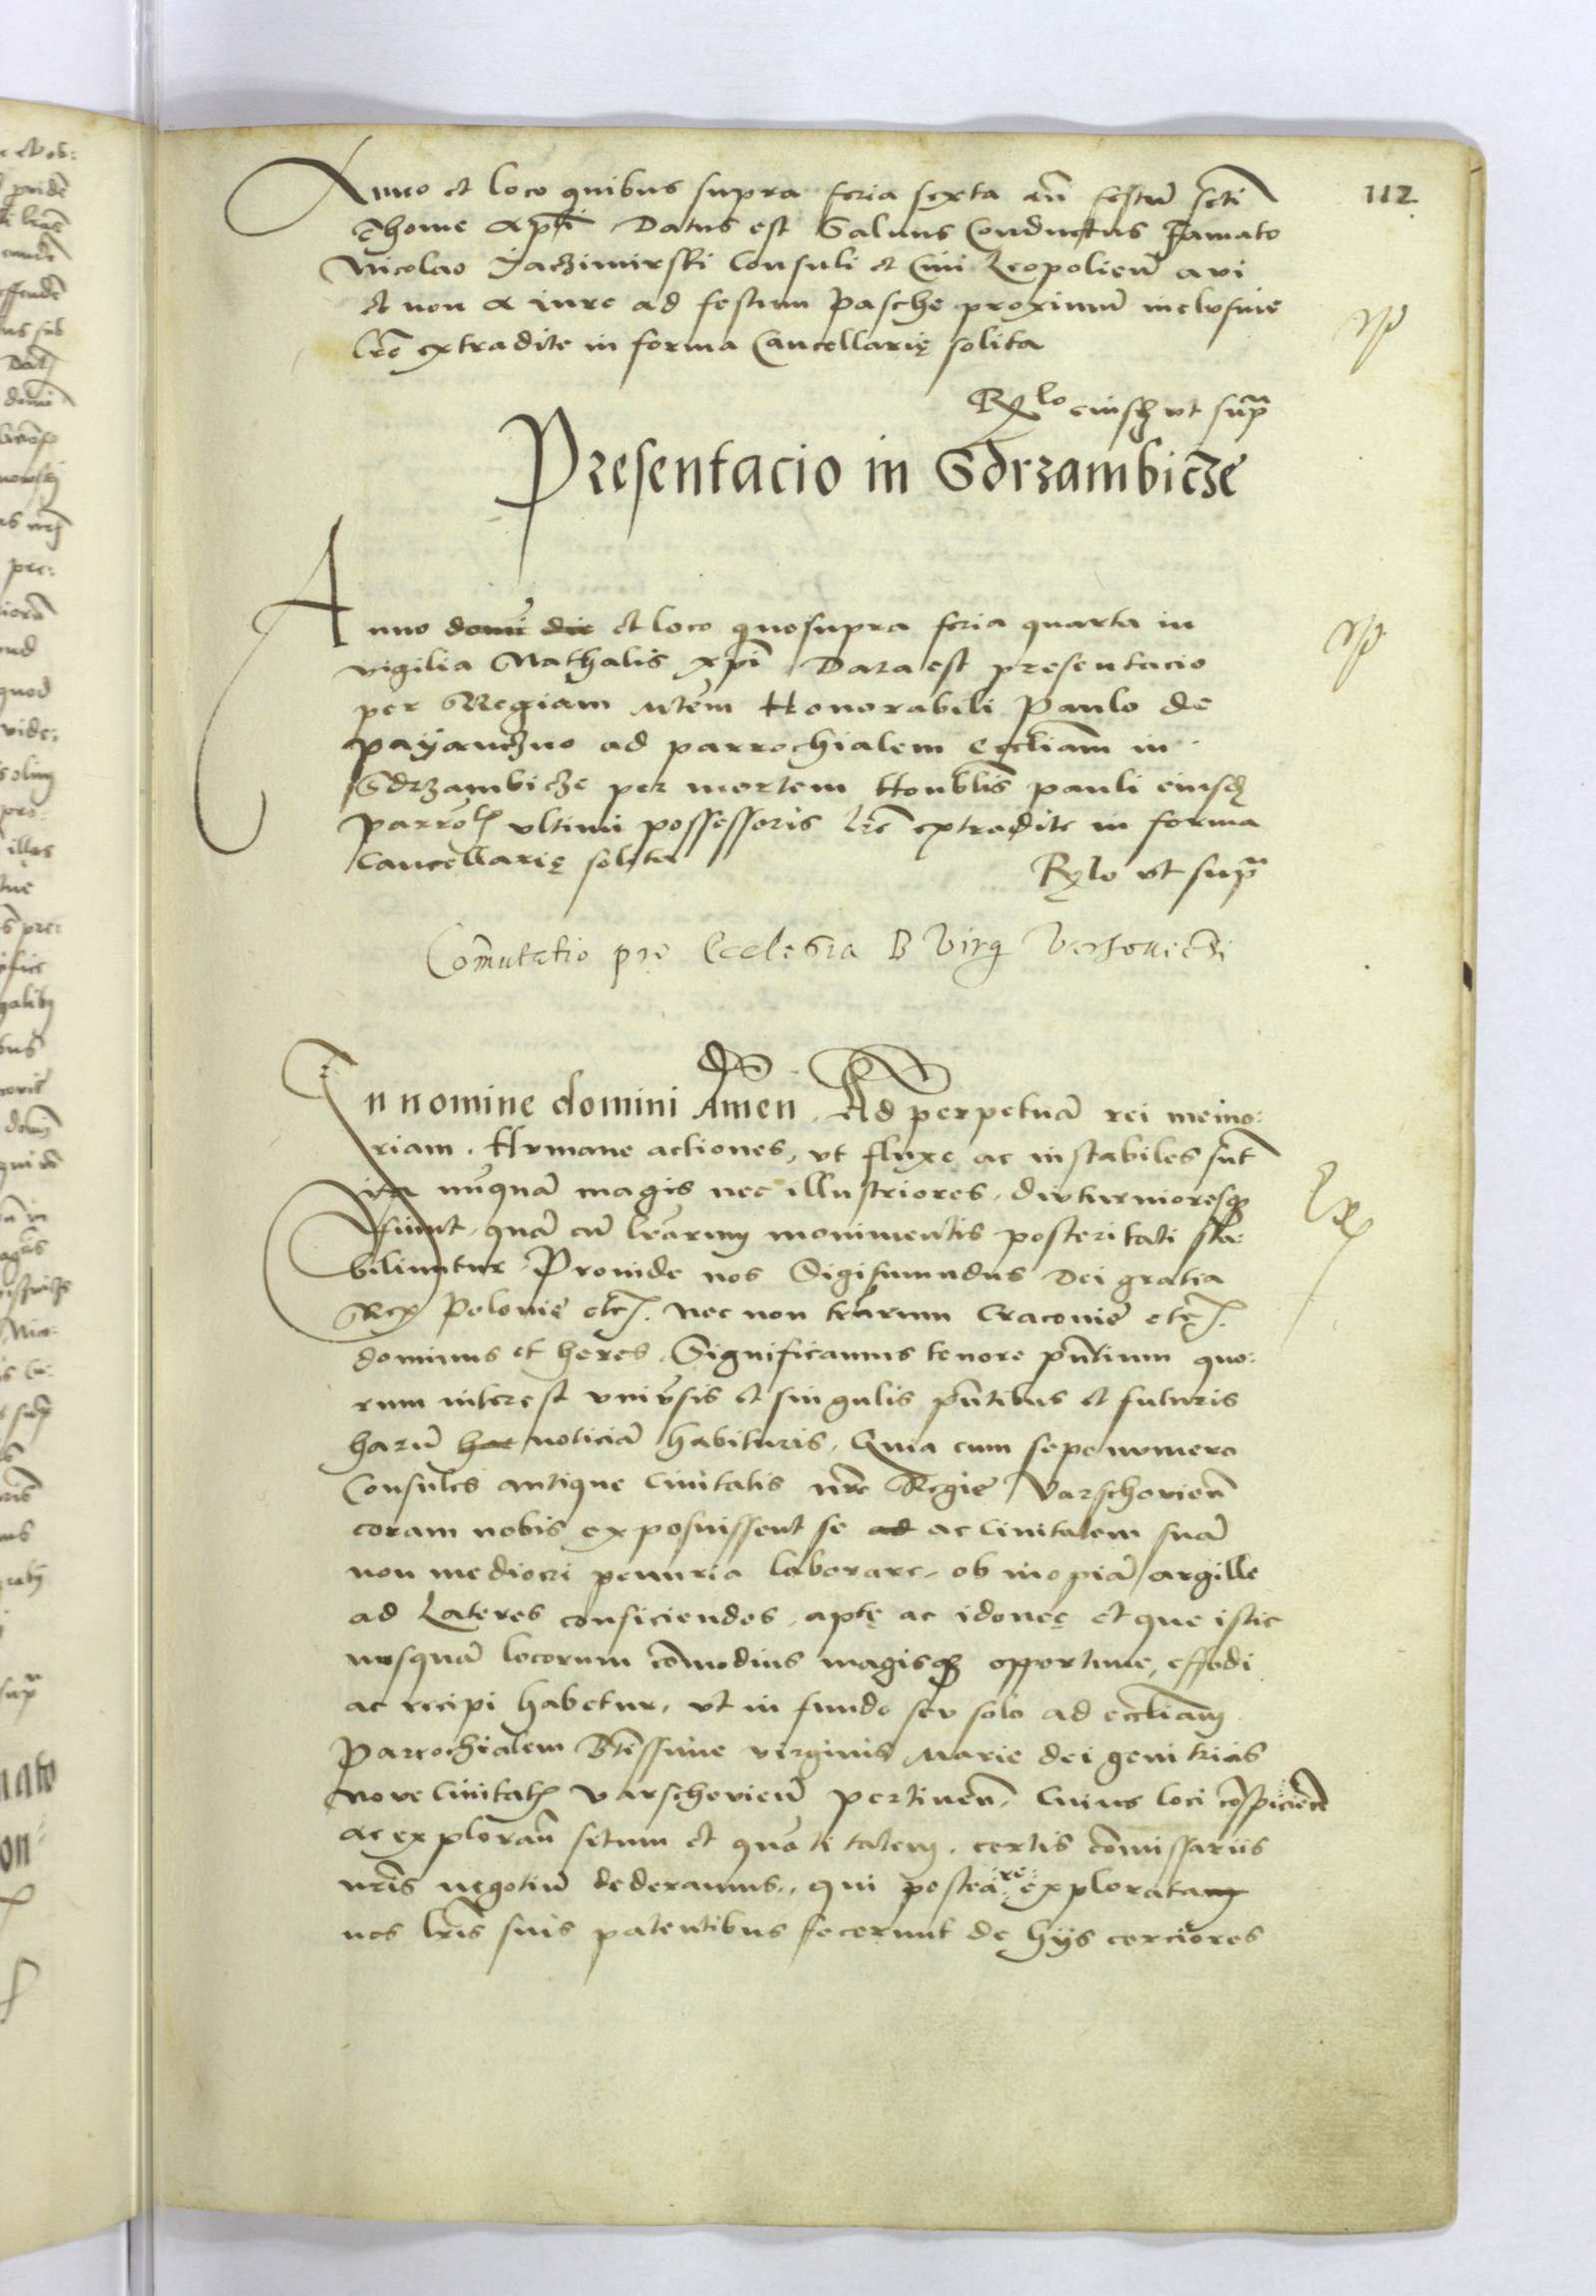 112
Anno et loco quibus supra feria sexta an̄ festū scti
Thome apłi Datus est Saluus Conductus Famato
Nicolao Yaczimirski Consuli et Ciui Leopolieñ a vi
et non a iure ad festum Pasche proximū inclusiue
lr̄e extradite in forma Cancellarię solita
eiusdē vt supra
Presentacio in Gdrzambicze
Anno domi die et loco quo supra feria quarta in
vigilia Nathalis xpi Data est presentacio
per Regiam Mtem Honorabili Paulo de
Payanczno ad parrochialem eccliam in
Gdrzambicze per mortem Honblis Pauli eiusdē
parroł vltimi possessoris lr̄e extradite in forma
Cancellarię solita
Relo vt supra
Com̄utatio pro Ecclesia B Virg
In nomine domini Amen. Ad perpetuā rei memo:
riam. Humane actiones, vt fluxe ac instabiles sūt
ita nūquā magis nec illustriores, diuturnioresq̄
fiunt, quā cū lrārum monimentis posteritati sta:
biliuntur. Proinde nos Sigismundus Dei gratia
Rex Polonię etc. nec non trārum Cracouie etc.
dominus et heres. Significamus tenore pn̄tium quo:
rum interest vniūsis et singulis pn̄tibus et futuris
harū hac noticiā habituris, Quia cum sepenumero
Consules antique Ciuitatis nr̄e Regie Varschouieñ
coram nobis exposuissent se ad ac Ciuitatem suā
non mediocri penuria laborare, ob inopiā argille
ad Lateres conficiendos, aptę ac idoneę et que istic
nusquā locorum com̄odius magisq̄ opportune, effodi
ac recipi habetur, vt in fundo seu solo ad eccliam
Parrochialem Btissime virginis Marie dei genitricis
Noue Ciuitatis Varschouieñ pertineñ. Cuius loci
ac exploran̄ situm et quātitatem, certis com̄issariis
nr̄is negotiū dederamus, qui postea re explorata
nos lr̄is suis patentibus fecerunt de hijs cerciores